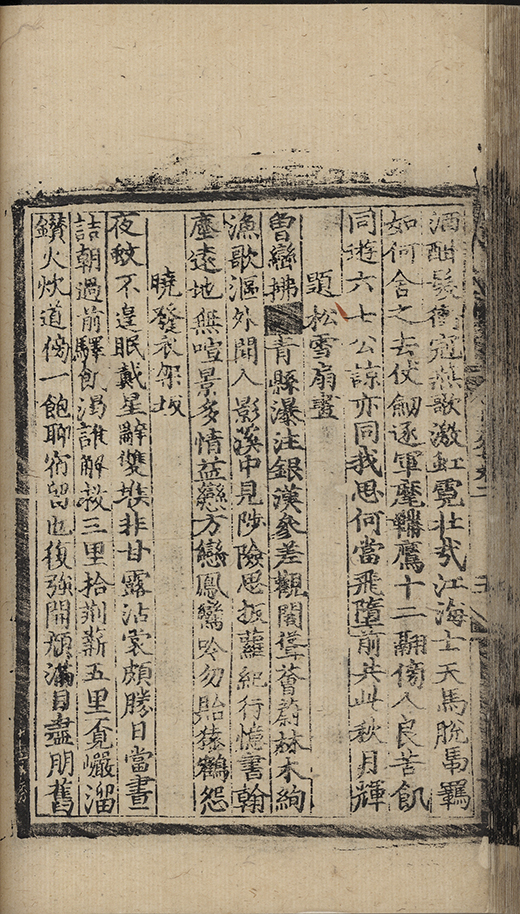 酒酣髮衝冠燕歌激虹霓壯哉江海士天馬脫馬羈
如何舍之去仗劒逐軍麾韝鷹十二翮傍人良苦飢
同遊六七公諒亦同我思何當飛墮前共此秋月輝
題松雪扇畫
曽巒拂青縣瀑注銀漢參差觀閣聳薈蔚林木絢
漁歌漚外聞人影溪中見陟險思扳蘿紀行憶書翰
塵遠地無喧景多情益戀方戀鳳鸞吟勿貽猿鶴怨
曉發衣架
夜蚊不遑眠戴星辭雙堠非甘露沾裳頗勝日當晝
詰朝過前驛飢渴誰解救三里拾荆薪五里覔巗溜
鑽火炊道傍一飽聊宿留也復強開顔滿目盡朋舊